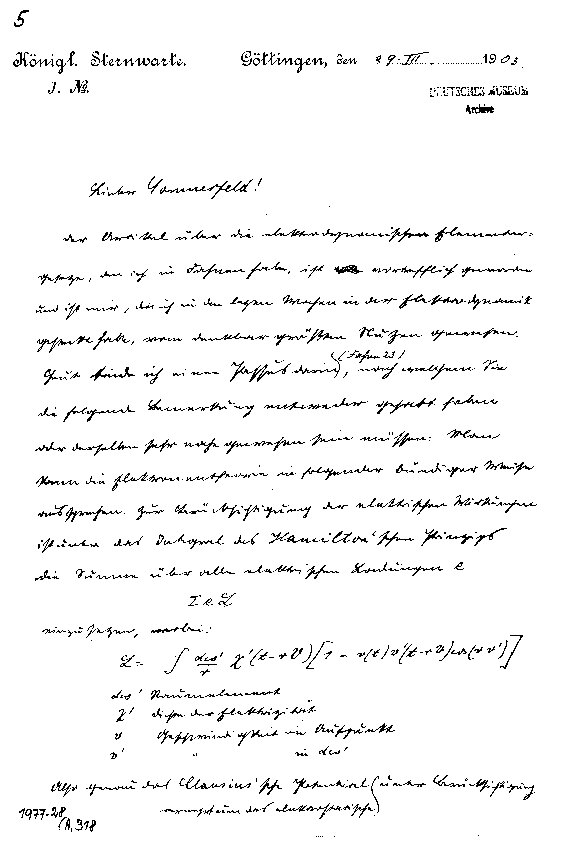 5
Königl. Sternwarte. Göttingen, den 29. III. 1903
J. №.
DEUTSCHES MUSEUM
Archive
Lieber Sommerfeld!
der Artikel über die elektrodynamischen Elementar-
gesetze, den ich in Fahnen habe, ist vortrefflich geworden
und ist mir, da ich in den letzen Wochen in der Elektrodynamik
gesteckt habe, vom denkbar größten Nutzen gewesen.
Heut finde ich einen Passus darin (Fahne 23), nach welchem Sie
die folgende Bemerkung entweder gehabt haben
oder derselben sehr nahe gewesen sein müssen: Man
kann die Elektronentheorie in folgender bündiger Weise
aussprechen. Zur Berücksichtigung der elektrischen Wirkungen
ist unter das Integral des Hamilton'schen Prinzips
die Summe über alle elektrischen Ladungen e
Σ e. L
einzusetzen, wobei:
L = ∫ dω'/r χ'(t-rV)[1 - v(t)v'(t-rV)cos(v v')]
dω' Raumelement
χ' Dichte der Elektrizität
v Geschwindigkeit im Aufpunkt
v' " in dω'
Also genau das Clausius'sche Potential (unter Berücksichtigung
des elektrostatische)
1977-28
(A, 318